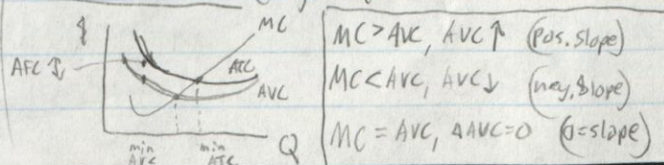 $
MC
AFC ↕
ATC
AVC
Q
min
AVC
min
ATC
MC > AVC, AVC ↑ (pos. slope)
MC < AVC, AVC ↓ (neg. slope)
MC = AVC, ΔAVC = 0 (0 = slope)